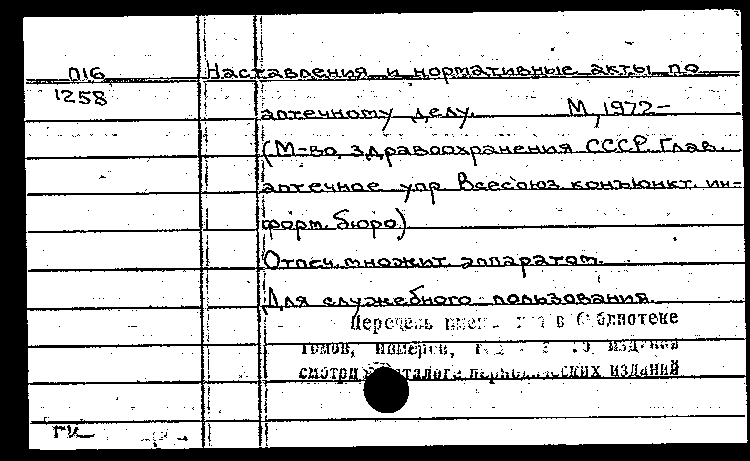 П16 Наставления и нормативные акты по
1258
аптечному делу. М, 1972-
(М-во здравоохранения СССР. Глав.
аптечное упр Всесоюз конъюнкт. ин-
форм. бюро)
Отпеч. множит. аппаратом.
Для служебного пользования.
Перечень в библиотеке
томов, номеров, изданий
смотри каталоге периодических изданий
ГК